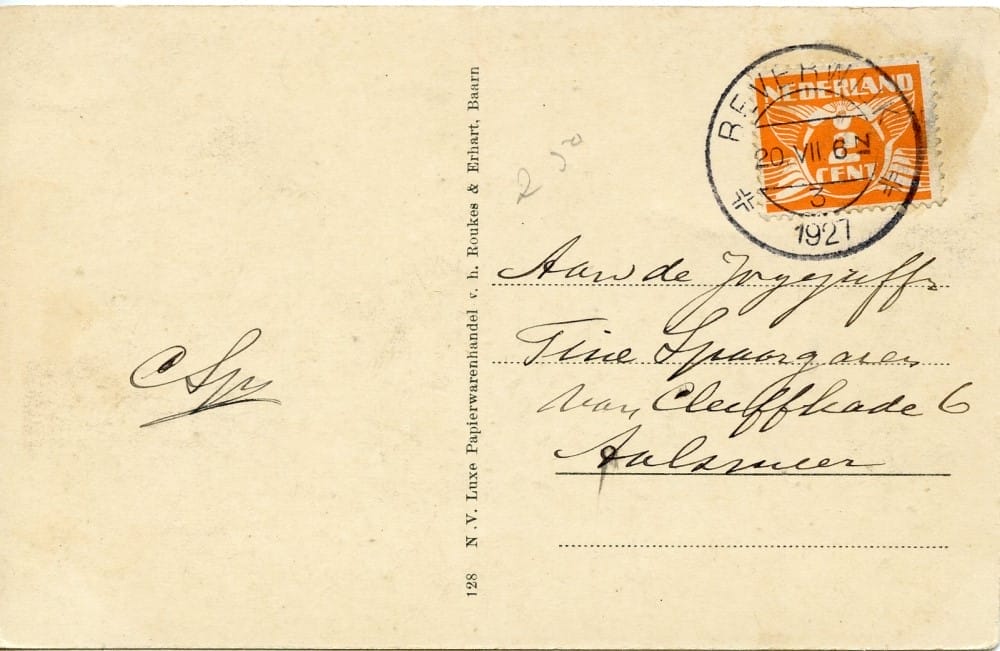 C Sp
128 N.V. Luxe Papierwarenhandel v. h. Roukes & Erhart, Baarn
2 50
NEDERLAND
2
CENT
BEVERWIJK
20 VII 6-N
3
1927
Aan de
Tine Spaargaren
van Cleeffkade 6
Aalsmeer